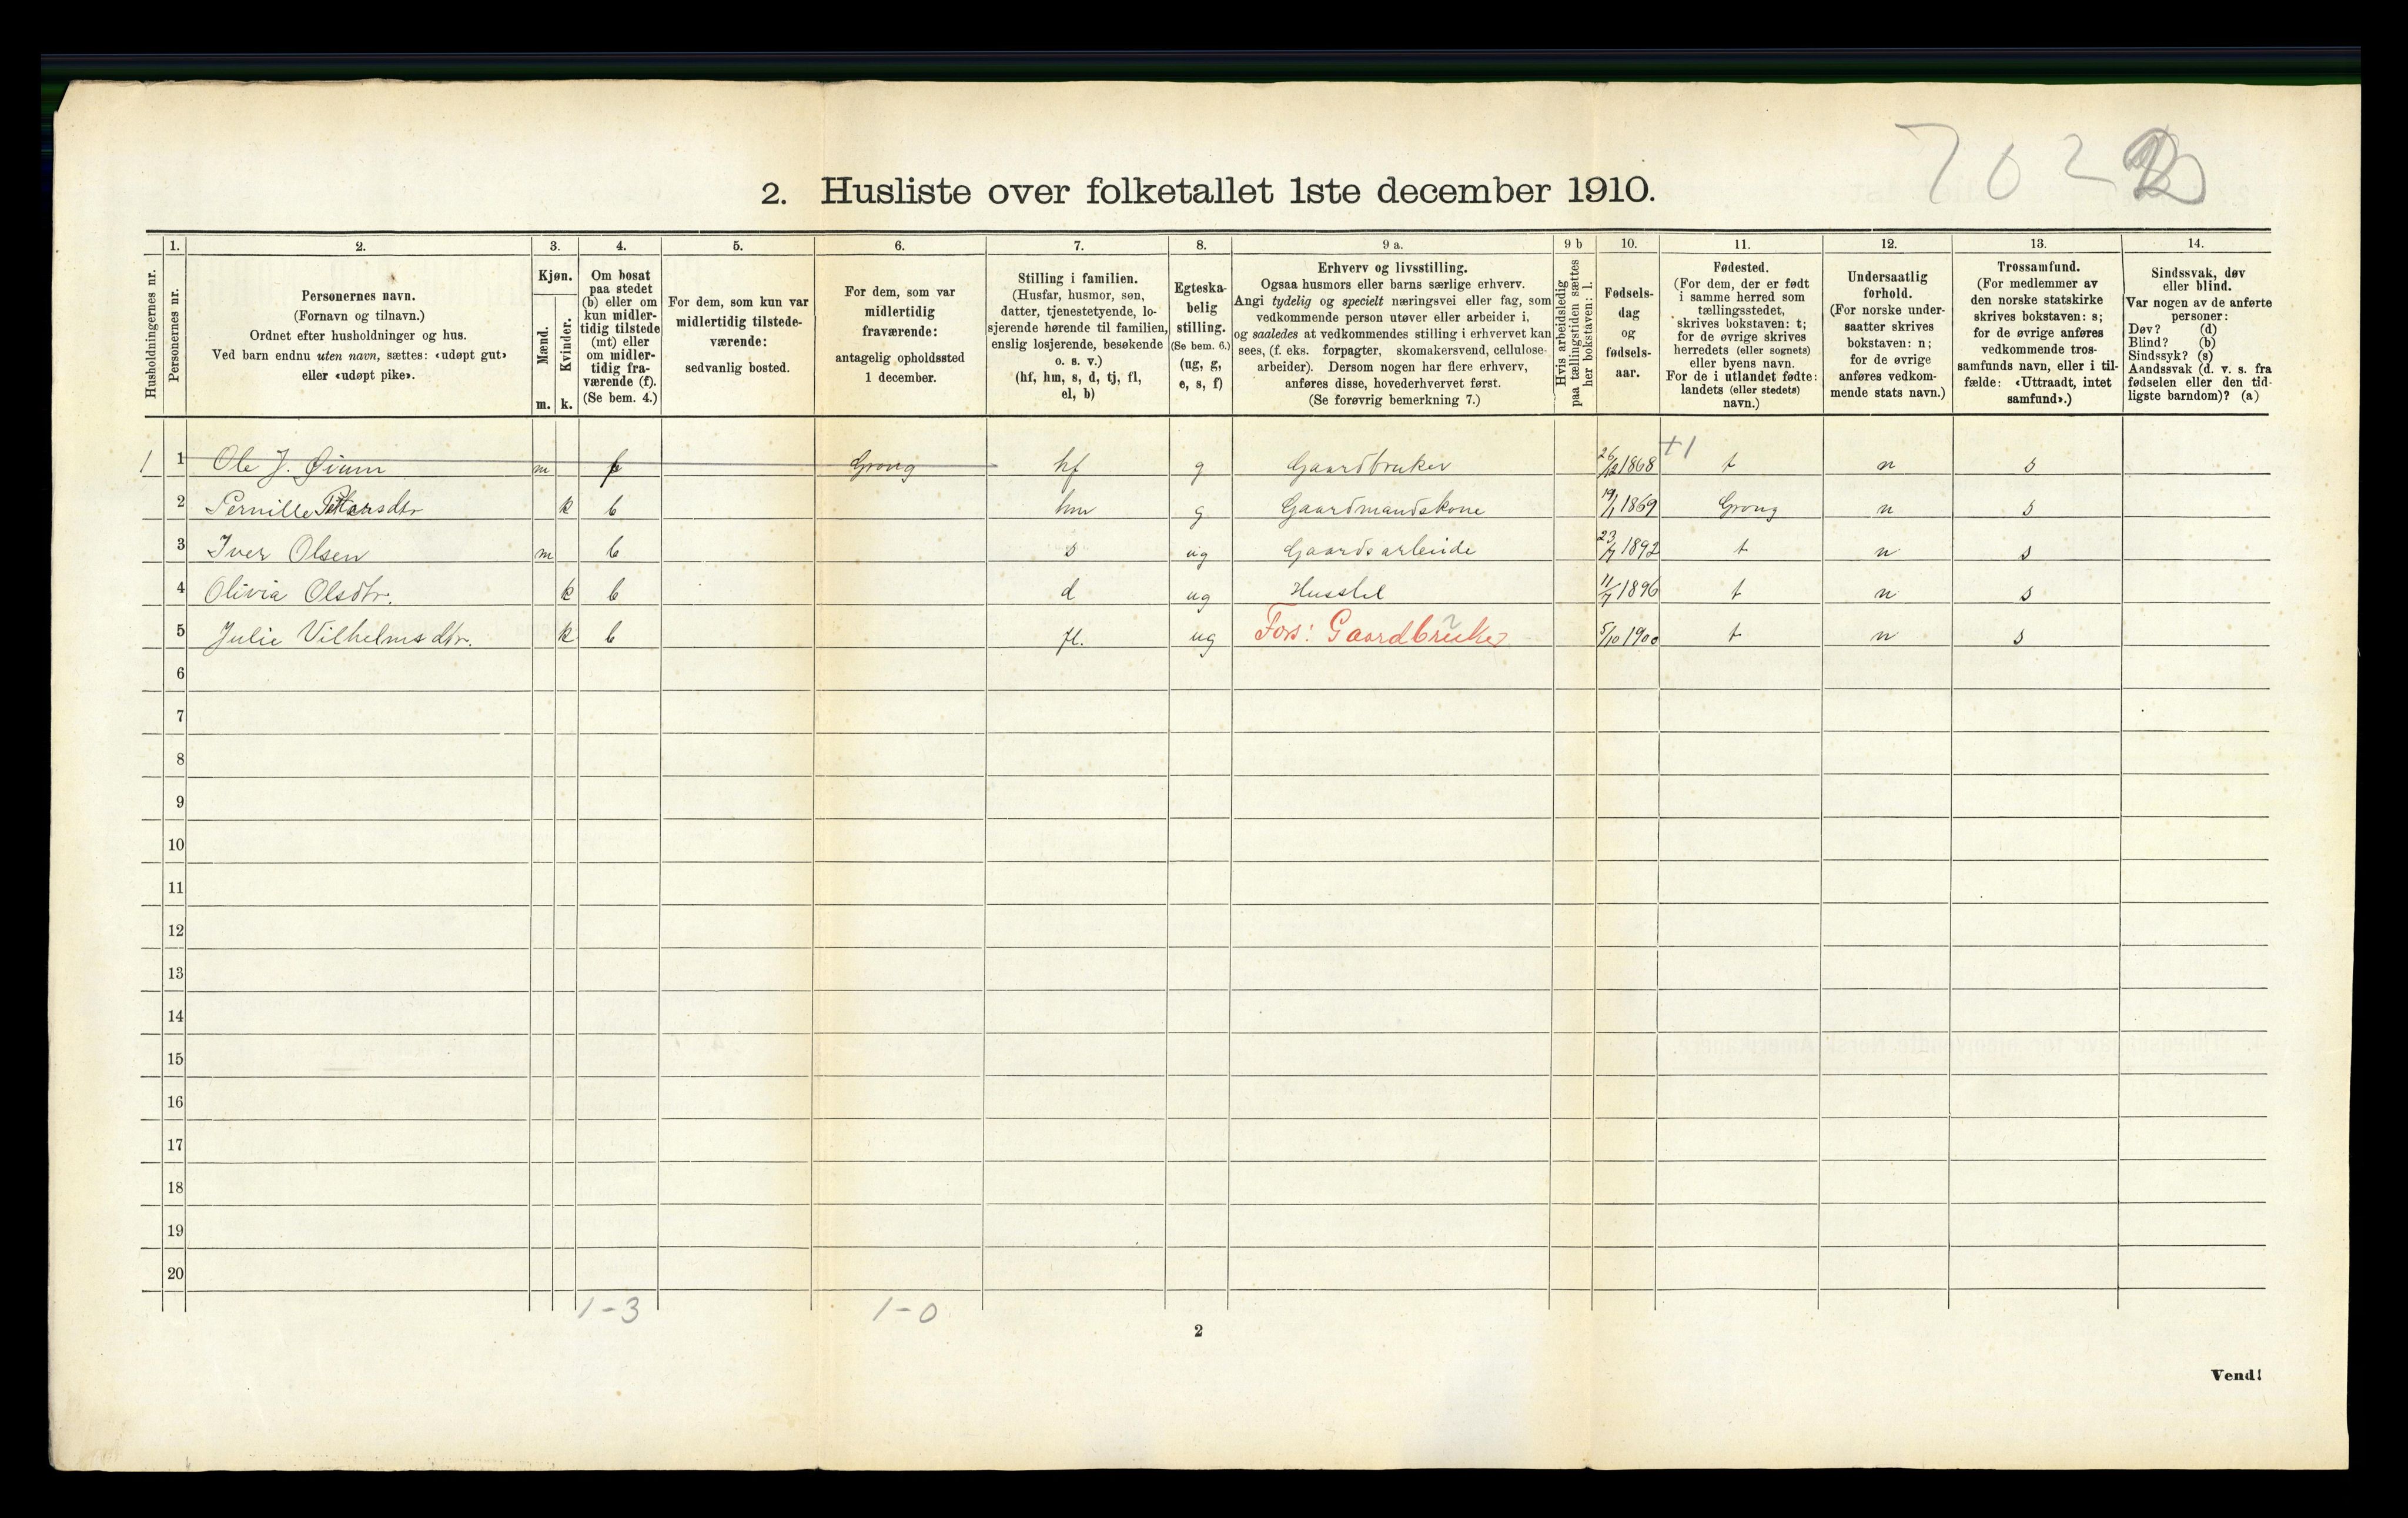 7022
2. Husliste over folketallet 1ste december 1910.
1. 2. 3. 4. 5. 6. 7. 8. 9 a. 9 b 10. 11. 12. 13. 14.
Husholdningernes nr.
Personernes nr.
Personernes navn.
(Fornavn og tilnavn.)
Ordnet efter husholdninger og hus.
Ved barn endnu uten navn, sættes: «udøpt gut»
eller «udøpt pike».
Kjøn.
Mænd.
Kvinder.
m. k.
Om bosat
paa stedet
(b) eller om
kun midler-
tidig tilstede
(mt) eller
om midler-
tidig fra-
værende (f).
(Se bem. 4.)
For dem, som kun var
midlertidig tilstede-
værende:
sedvanlig bosted.
For dem, som var
midlertidig
fraværende:
antagelig opholdssted
1 december.
Stilling i familien.
(Husfar, husmor, søn,
datter, tjenestetyende, lo-
sjerende hørende til familien,
enslig losjerende, besøkende
o. s. v.)
(hf, hm, s, d, tj, fl,
el, b)
Egteska-
belig
stilling.
(Se bem. 6.)
(ug, g,
e, s, f)
Erhverv og livsstilling.
Ogsaa husmors eller barns særlige erhverv.
Angi tydelig og specielt næringsvei eller fag, som
vedkommende person utøver eller arbeider i,
og saaledes at vedkommendes stilling i erhvervet kan
sees, (f. eks. forpagter, skomakersvend, cellulose-
arbeider). Dersom nogen har flere erhverv,
anføres disse, hovederhvervet først.
(Se forøvrig bemerkning 7.)
Hvis arbeidsledig
paa tællingstiden sættes
her bokstaven: l.
Fødsels-
dag
og
fødsels-
aar.
Fødested.
(For dem, der er født
i samme herred som
tællingsstedet,
skrives bokstaven: t;
for de øvrige skrives
herredets (eller sognets)
eller byens navn.
For de i utlandet fødte:
landets (eller stedets)
navn.)
Undersaatlig
forhold.
(For norske under-
saatter skrives
bokstaven: n;
for de øvrige
anføres vedkom-
mende stats navn.)
Trossamfund.
(For medlemmer av
den norske statskirke
skrives bokstaven: s;
for de øvrige anføres
vedkommende tros-
samfunds navn, eller i til-
fælde: «Uttraadt, intet
samfund».)
Sindssvak, døv
eller blind.
Var nogen av de anførte
personer:
Døv? (d)
Blind? (b)
Sindssyk? (s)
Aandssvak (d. v. s. fra
fødselen eller den tid-
ligste barndom)? (a)
1 1 Ole J. Øium m f Grong hf g Gaardbruker 26/12 1868 +1 t n s
2 Pernille Petersdtr k b hm g Gaardmandskone 19/1 1869 Grong n s
3 Iver Olsen m b s ug Gaardsarbeide 23/7 1892 t n s
4 Olivia Olsdtr. k b d ug Husstel 11/7 1896 t n s
5 Julie Vilhelmsdtr. k b fl. ug Fors: Gaardbruker 5/10 1900 t n s
6
7
8
9
10
11
12
13
14
15
16
17
18
19
20
1-3 1-0
2
Vend!